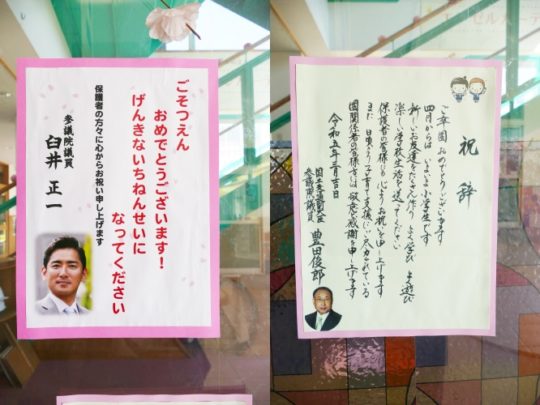 ごそつえん
おめでとうございます！
げんきないちねんせいに
なってください
保護者の方々に心からお祝い申し上げます
参議院議員
臼井 正一
祝辞
ご卒園おめでとうございます
四月からは いよいよ小学生です
新しいお友達をたくさん作り よく学び よく遊び
楽しい学校生活を送ってください
保護者の皆様にも 心よりお祝いを申し上げます
また 日頃より子育て支援にご尽力されている
園関係者の皆様方には 敬意と感謝を申し上げます
令和五年三月吉日
国土交通副大臣
参議院議員
豊田俊郎